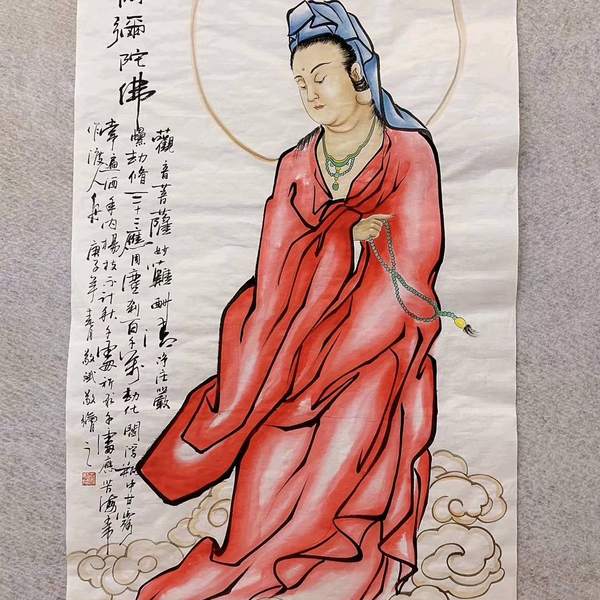 阿彌陀佛
觀音菩薩妙難酬清淨莊嚴
累劫修三十三應周塵剎百千萬劫化閻浮瓶中甘露
常遍洒手內楊枝不計秋千處祈求千處應苦海常
作渡人舟庚子年春月敬敬繪之